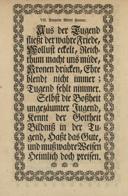 Aus der Tugend
fliest der wahre Friede,
Wollust eckelt, Reich-
thum macht uns müde,
Kronen drücken, Ehre
blendt nicht immer;
Tugend fehlt nimmer.
Selbst die Bosheit
ungezäumter Jugend,
Kennt der Gottheit
Bildniß in der Tu-
gend, Haßt das Gute,
und muß wahre Weisen
Heimlich doch preisen.